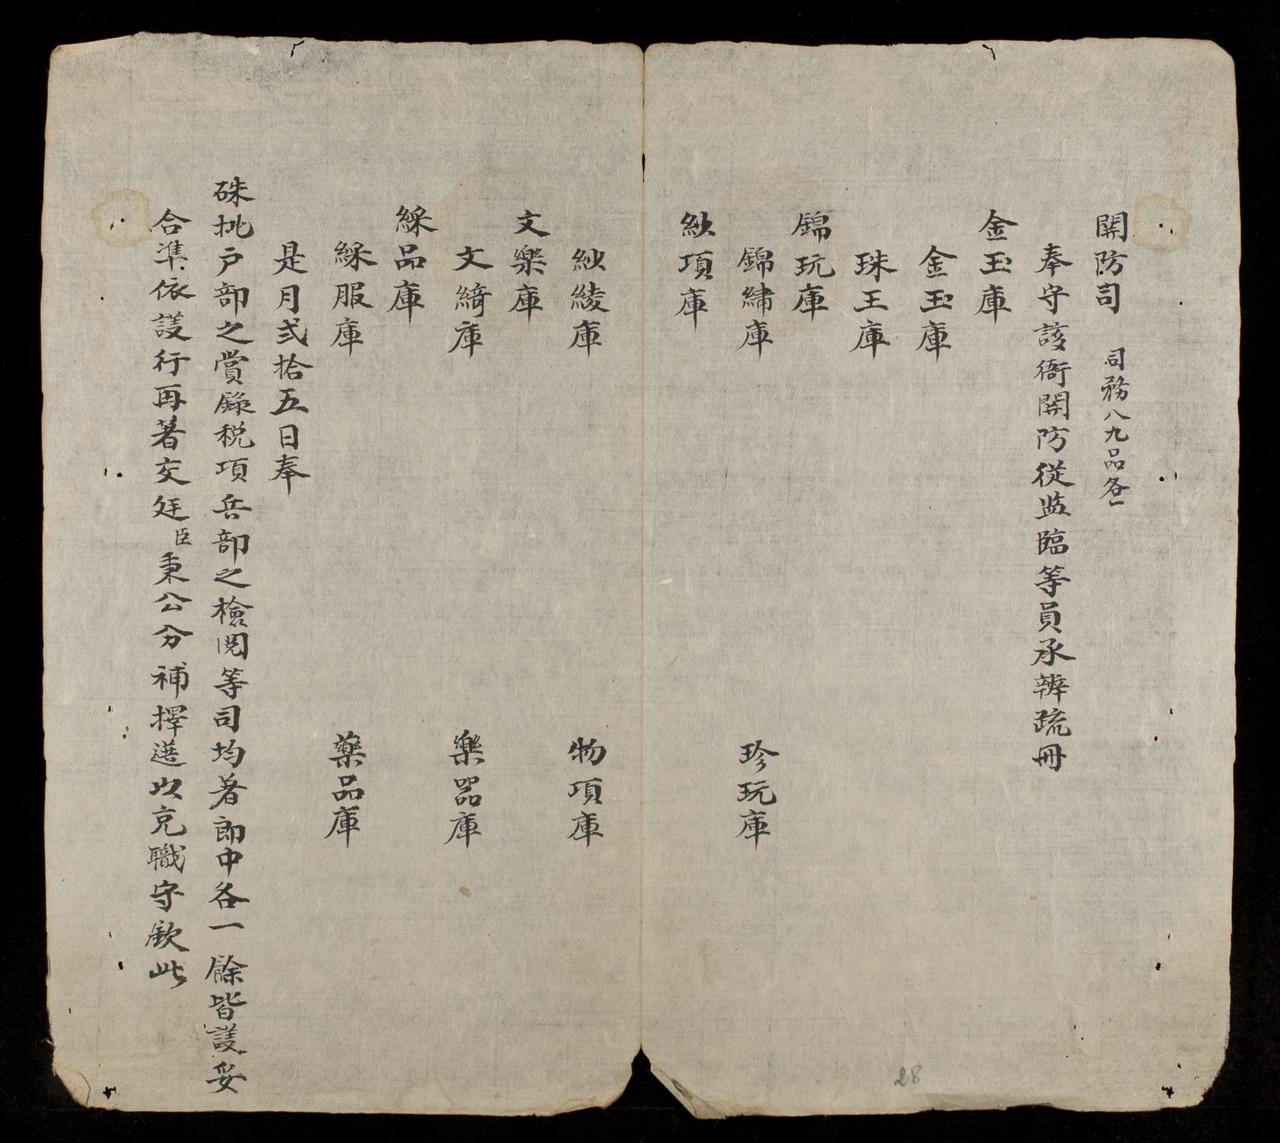 開防司 司務八九品各一
奉守該衙開防從監臨等員承辨疏冊
金玉庫
金玉庫
珠王庫
錦玩庫
錦繡庫 珍玩庫
紈項庫
紗綾庫 物項庫
文樂庫
文綺庫 樂器庫
綵品庫
綵服庫 藥品庫
是月弍拾五日奉
硃批户部之賞錄税項兵部之檢閱等司均著郎中各一餘皆議妥
合準依議行再著交廷臣秉公分補擇選以充職守欽此
28